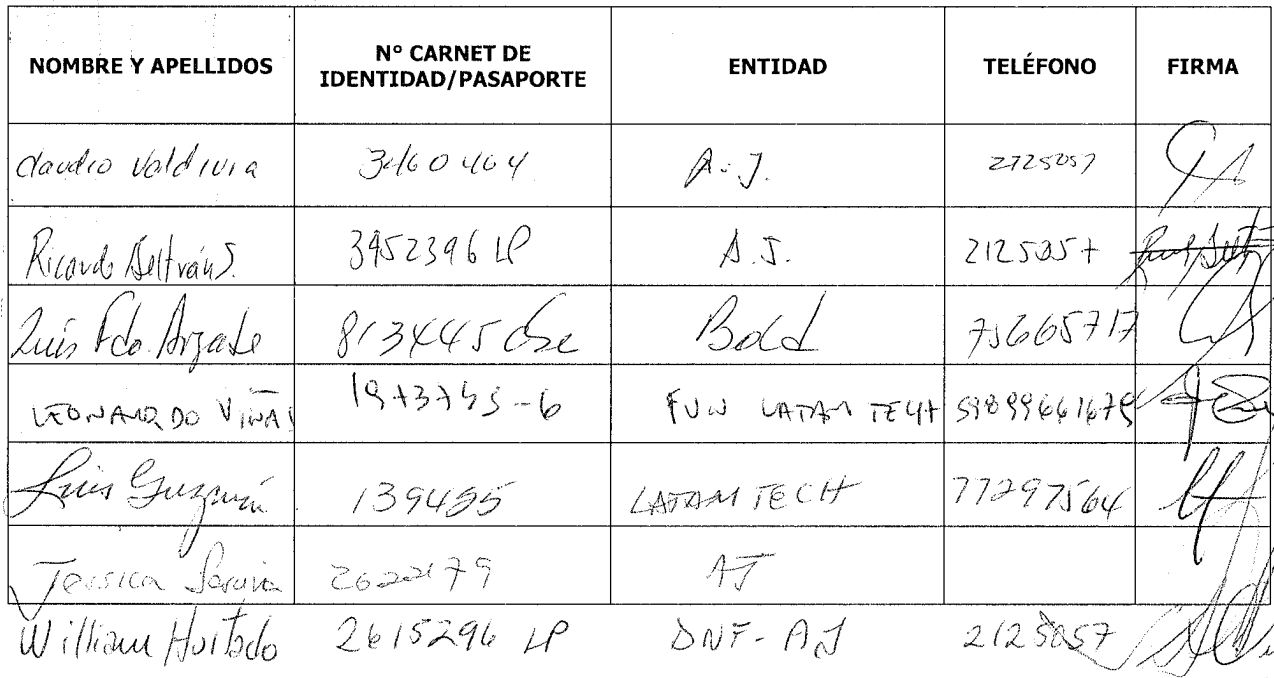 NOMBRE Y APELLIDOS
N° CARNET DE
IDENTIDAD/PASAPORTE
ENTIDAD
TELÉFONO
FIRMA
Claudio Valdivia 3460464 A.J. 2125057
Ricardo Beltrán S. 3452396 LP A.J. 2125057
Luis Fdo. Arzate 813445 Bold 73665717
LEONARDO VIÑAS 1973755-6 FUN LATAM TECH 59899661679
Luis Guzmán 139455 LATAM TECH 77297564
Jessica Saravia 2622179 AJ
William Hurtado 2615296 LP DNF-AJ 2125057